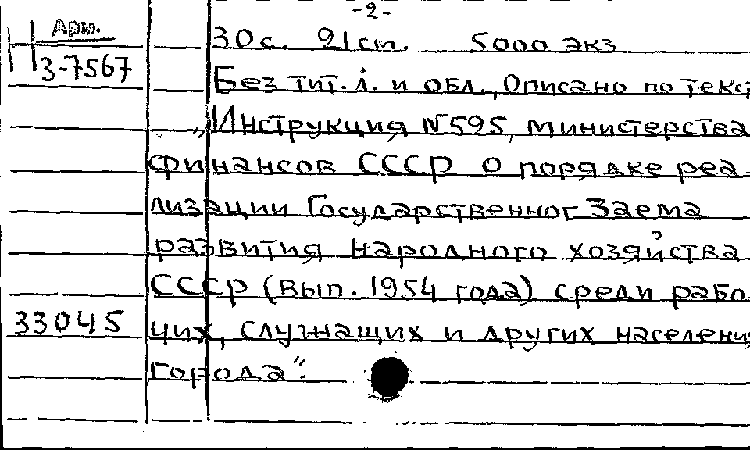 -2-
Арм.
30с. 21см. 5000 экз
3-7567
Без тит. л. и обл., Описано по текст
„Инструкция №595, министерства
финансов СССР о порядке реа-
лизации Государственног Заема
развития народного хозяйства
СССР (вып. 1954 года) среди рабо
33045
чих, служащих и других населени
города".